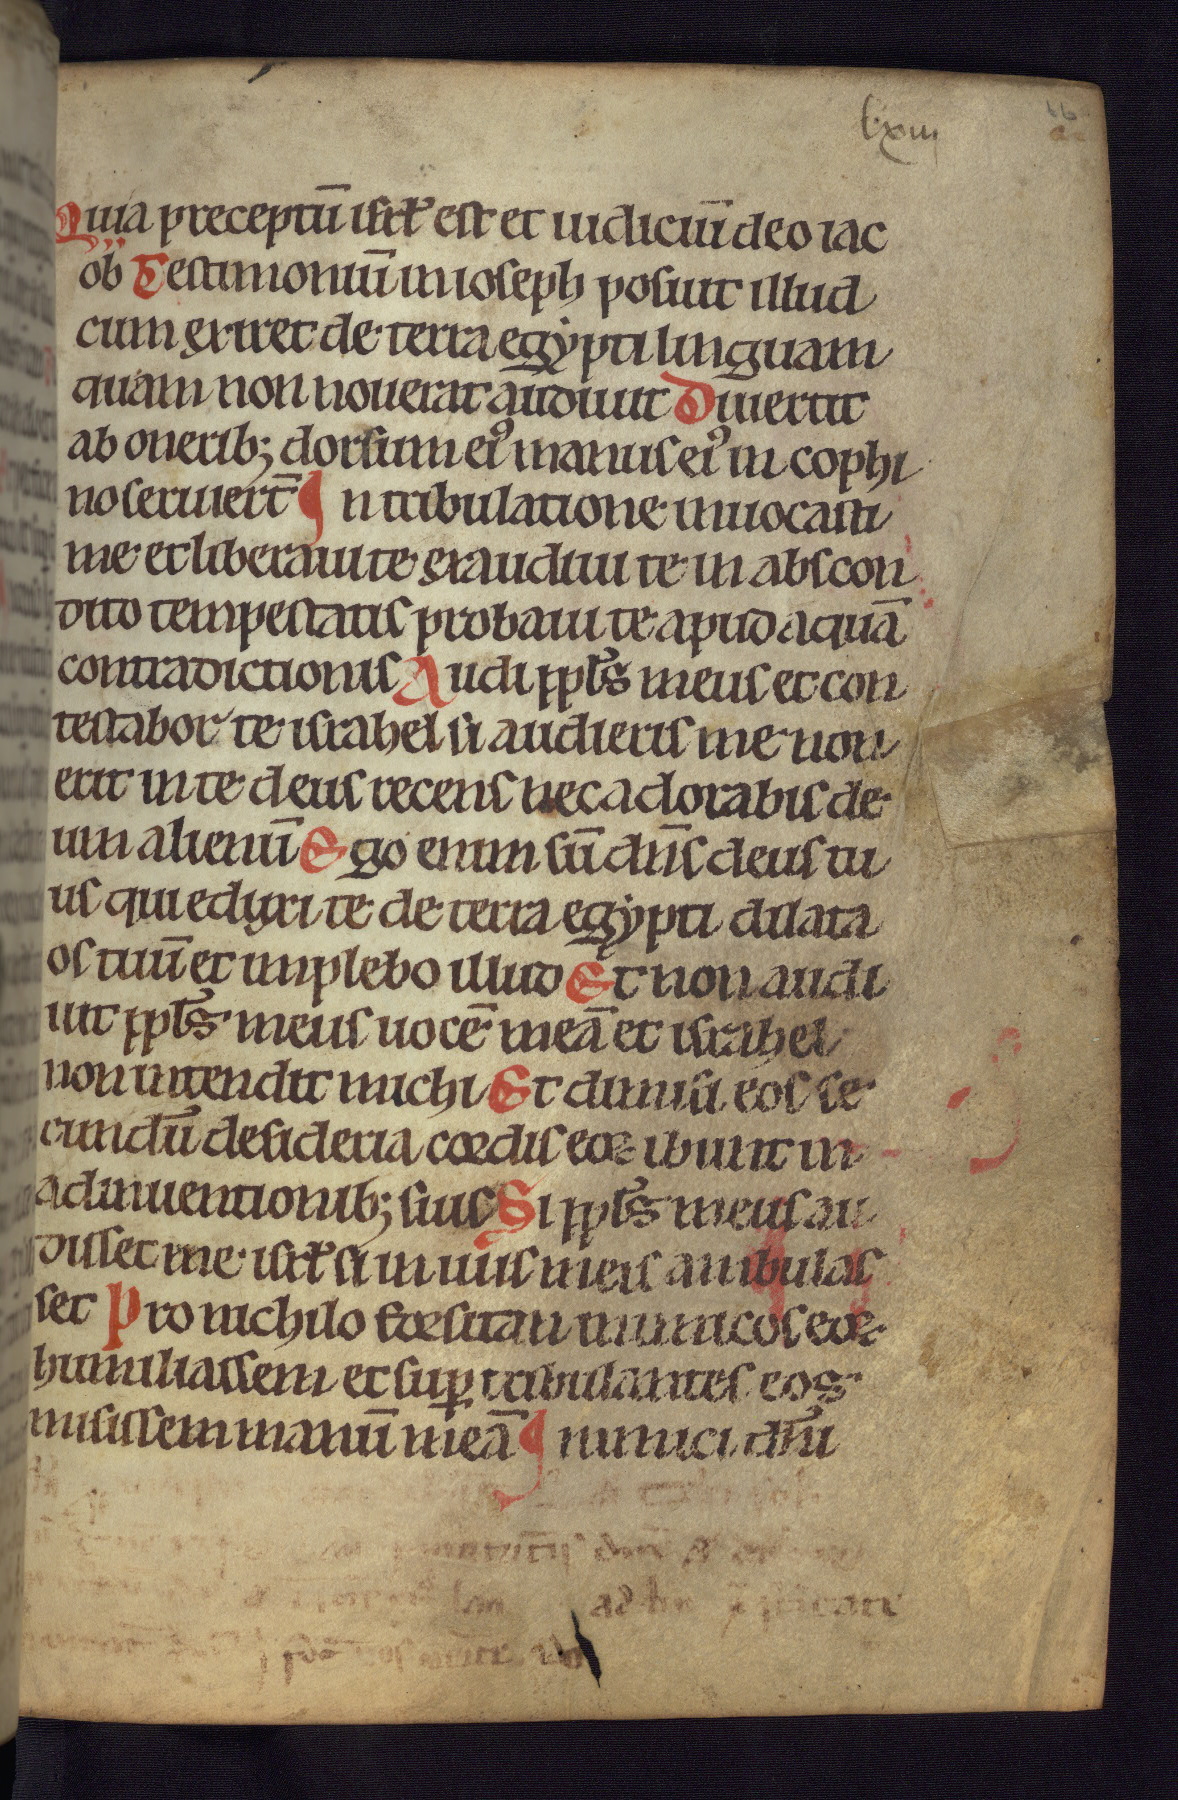 lxiii
Quia preceptū isrł est et iudiciū deo iac
ob Testimoniū in ioseph posuit illud
cum exiret de terra egypti linguam
quam non nouerat audiuit Diuertit
ab onerib; dorsum eiꝰ manus eiꝰ in cophi
no seruiert̄ In tribulatione inuocasti
me et liberaui te exaudiui te in abscon
dito tempestatis probaui te apud aquā
contradictionis Audi ppłs meus et con
testabor te israhel si audieris me non
erit in te deus recens nec adorabis de
um alienū Ego enim sū dn̄s deus tu
us qui eduxi te de terra egypti dilata
os tuū et implebo illud Et non audi
uit ppłs meus uocē meā et israhel
non intendit michi Et dimisi eos se
cundū desideria cordis eoꝝ ibunt in
adinuentionib; suis Si ppłs meus au
disset me isrł si in uiis meis ambulas
set Pro nichilo forsitan inimicos eoꝝ
humiliassem et suꝑ tribulantes eos
misissem manū meā Inimici dn̄i